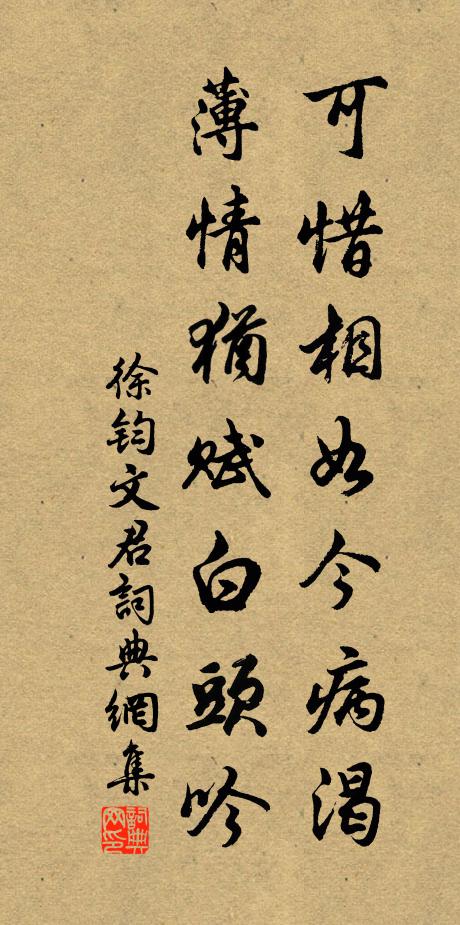 可惜相如今病渴
薄情猶賦白頭吟
徐鈞文君詞典網集
詞典网印